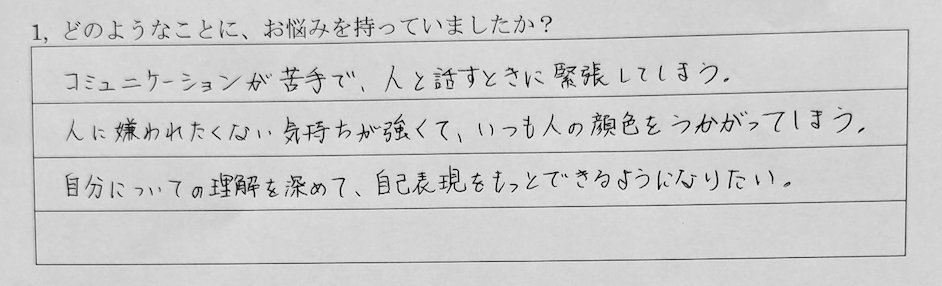 1, どのようなことに、お悩みを持っていましたか？
コミュニケーションが苦手で、人と話すときに緊張してしまう。
人に嫌われたくない気持ちが強くて、いつも人の顔色をうかがってしまう。
自分についての理解を深めて、自己表現をもっとできるようになりたい。